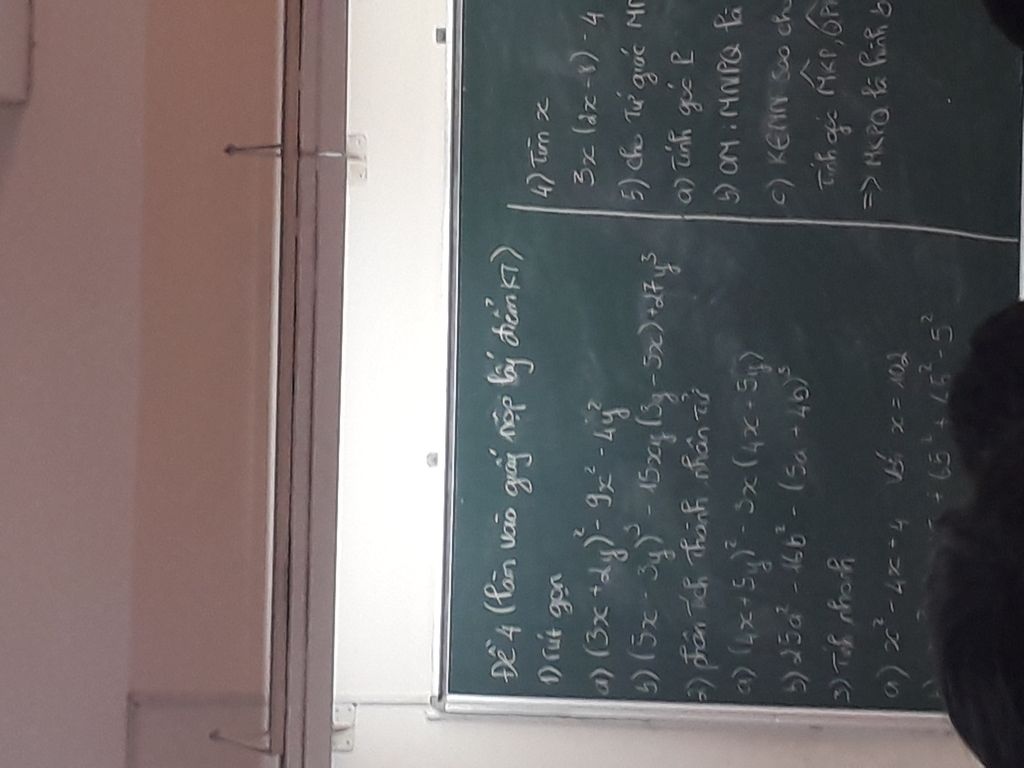 Đề 4 (Làm vào giấy nộp lấy điểm KT)
1) rút gọn
a) (3x + 2y)² - 9x² - 4y²
b) (5x - 3y)³ - 15xy(3y - 5x) + 27y³
2) phân tích thành nhân tử
a) (4x + 5y)² - 3x(4x + 5y)
b) 25a² - 16b² - (5a + 4b)³
3) Tính nhanh
a) x² - 4x - 4 với x = 102
+ 65² + 45² - 5²
4) Tìm x
3x(2x - 1) - 4
5) cho Tứ giác
a) Tính góc P
b) CM: MNPQ là
c) KEMN sao
Tính góc MKP,
=> MKPQ là hình b